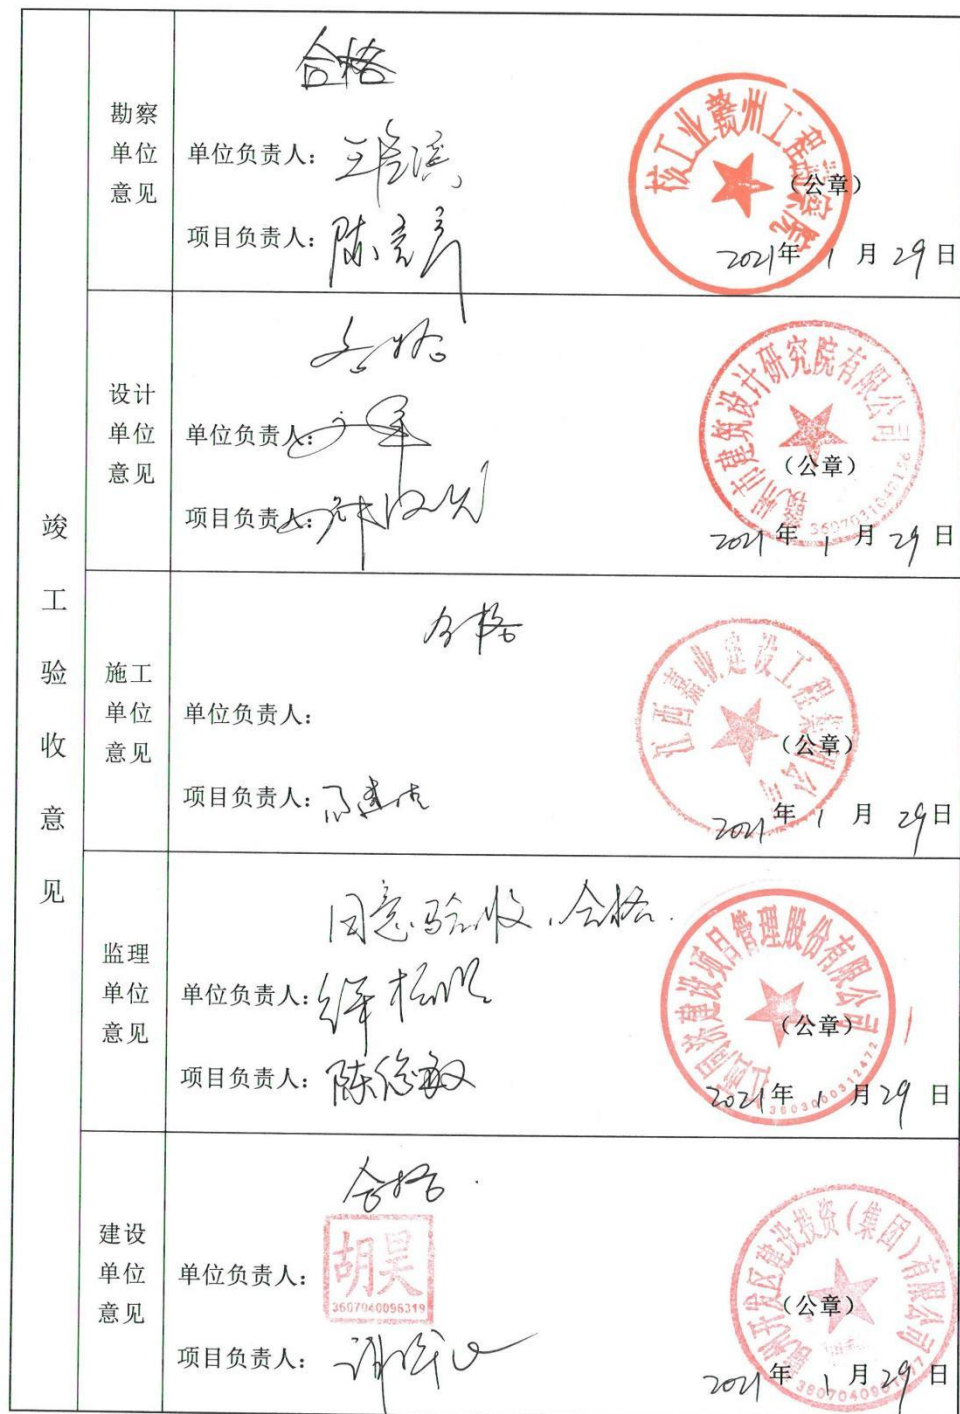 竣工验收意见
勘察单位意见
合格
单位负责人：
项目负责人：
核工业赣州工程勘察院
（公章）
2021年 1 月 29 日
设计单位意见
合格
单位负责人：
项目负责人：
赣州市建筑设计研究院有限公司
（公章）
2021年 1 月 29 日
施工单位意见
合格
单位负责人：
项目负责人：
江西嘉业建设工程集团公司
（公章）
2021年 1 月 29 日
监理单位意见
同意验收，合格.
单位负责人：
项目负责人：陈俊敏
建设项目管理股份有限公司
3603000312472
（公章）
2021年 1 月 29 日
建设单位意见
合格.
单位负责人：
胡昊
3607040096319
项目负责人：
赣州开发区建设投资（集团）有限公司
（公章）
2021年 1 月 29 日